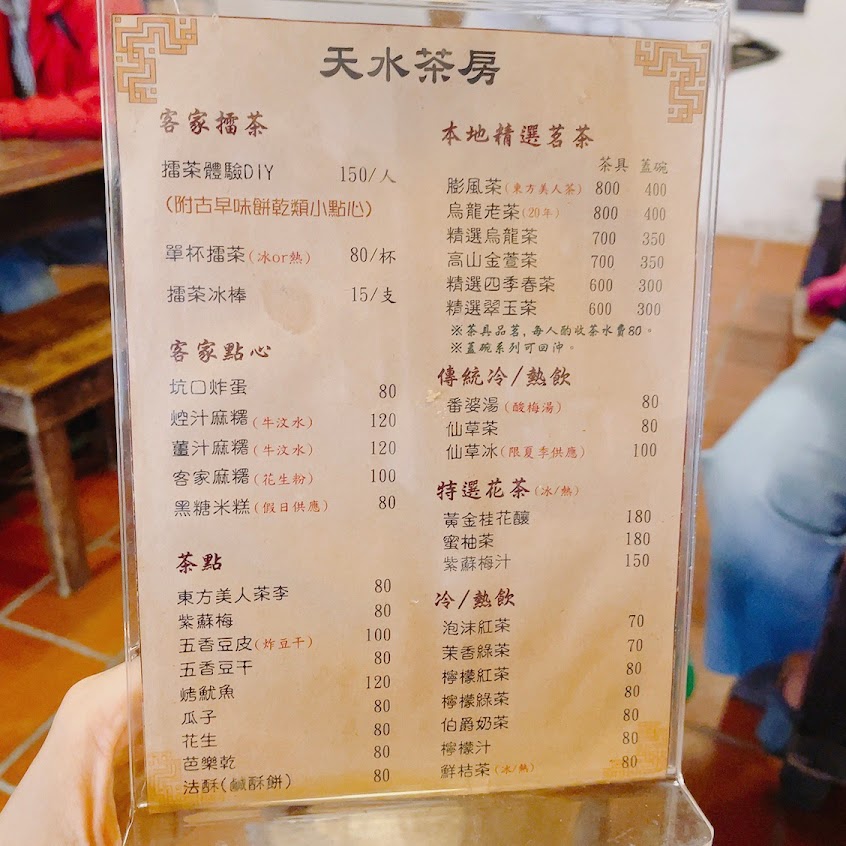 天水茶房
客家擂茶
擂茶體驗DIY 150/人
(附古早味餅乾類小點心)
單杯擂茶(冰or熱) 80/杯
擂茶冰棒 15/支
客家點心
坑口炸蛋 80
焢汁麻糬(牛汶水) 120
薑汁麻糬(牛汶水) 120
客家麻糬(花生粉) 100
黑糖米糕(假日供應) 80
茶點
東方美人茶李 80
紫蘇梅 80
五香豆皮(炸豆干) 100
五香豆干 80
烤魷魚 120
瓜子 80
花生 80
芭樂乾 80
法酥(鹹酥餅) 80
本地精選茗茶
茶具 蓋碗
膨風茶(東方美人茶) 800 400
烏龍老茶(20年) 800 400
精選烏龍茶 700 350
高山金萱茶 700 350
精選四季春茶 600 300
精選翠玉茶 600 300
※茶具品茗,每人酌收茶水費80。
※蓋碗系列可回沖。
傳統冷/熱飲
番婆湯(酸梅湯) 80
仙草茶 80
仙草冰(限夏季供應) 100
特選花茶(冰/熱)
黃金桂花釀 180
蜜柚茶 180
紫蘇梅汁 150
冷/熱飲
泡沫紅茶 70
茉香綠茶 70
檸檬紅茶 80
檸檬綠茶 80
伯爵奶茶 80
檸檬汁 80
鮮桔茶(冰/熱) 80